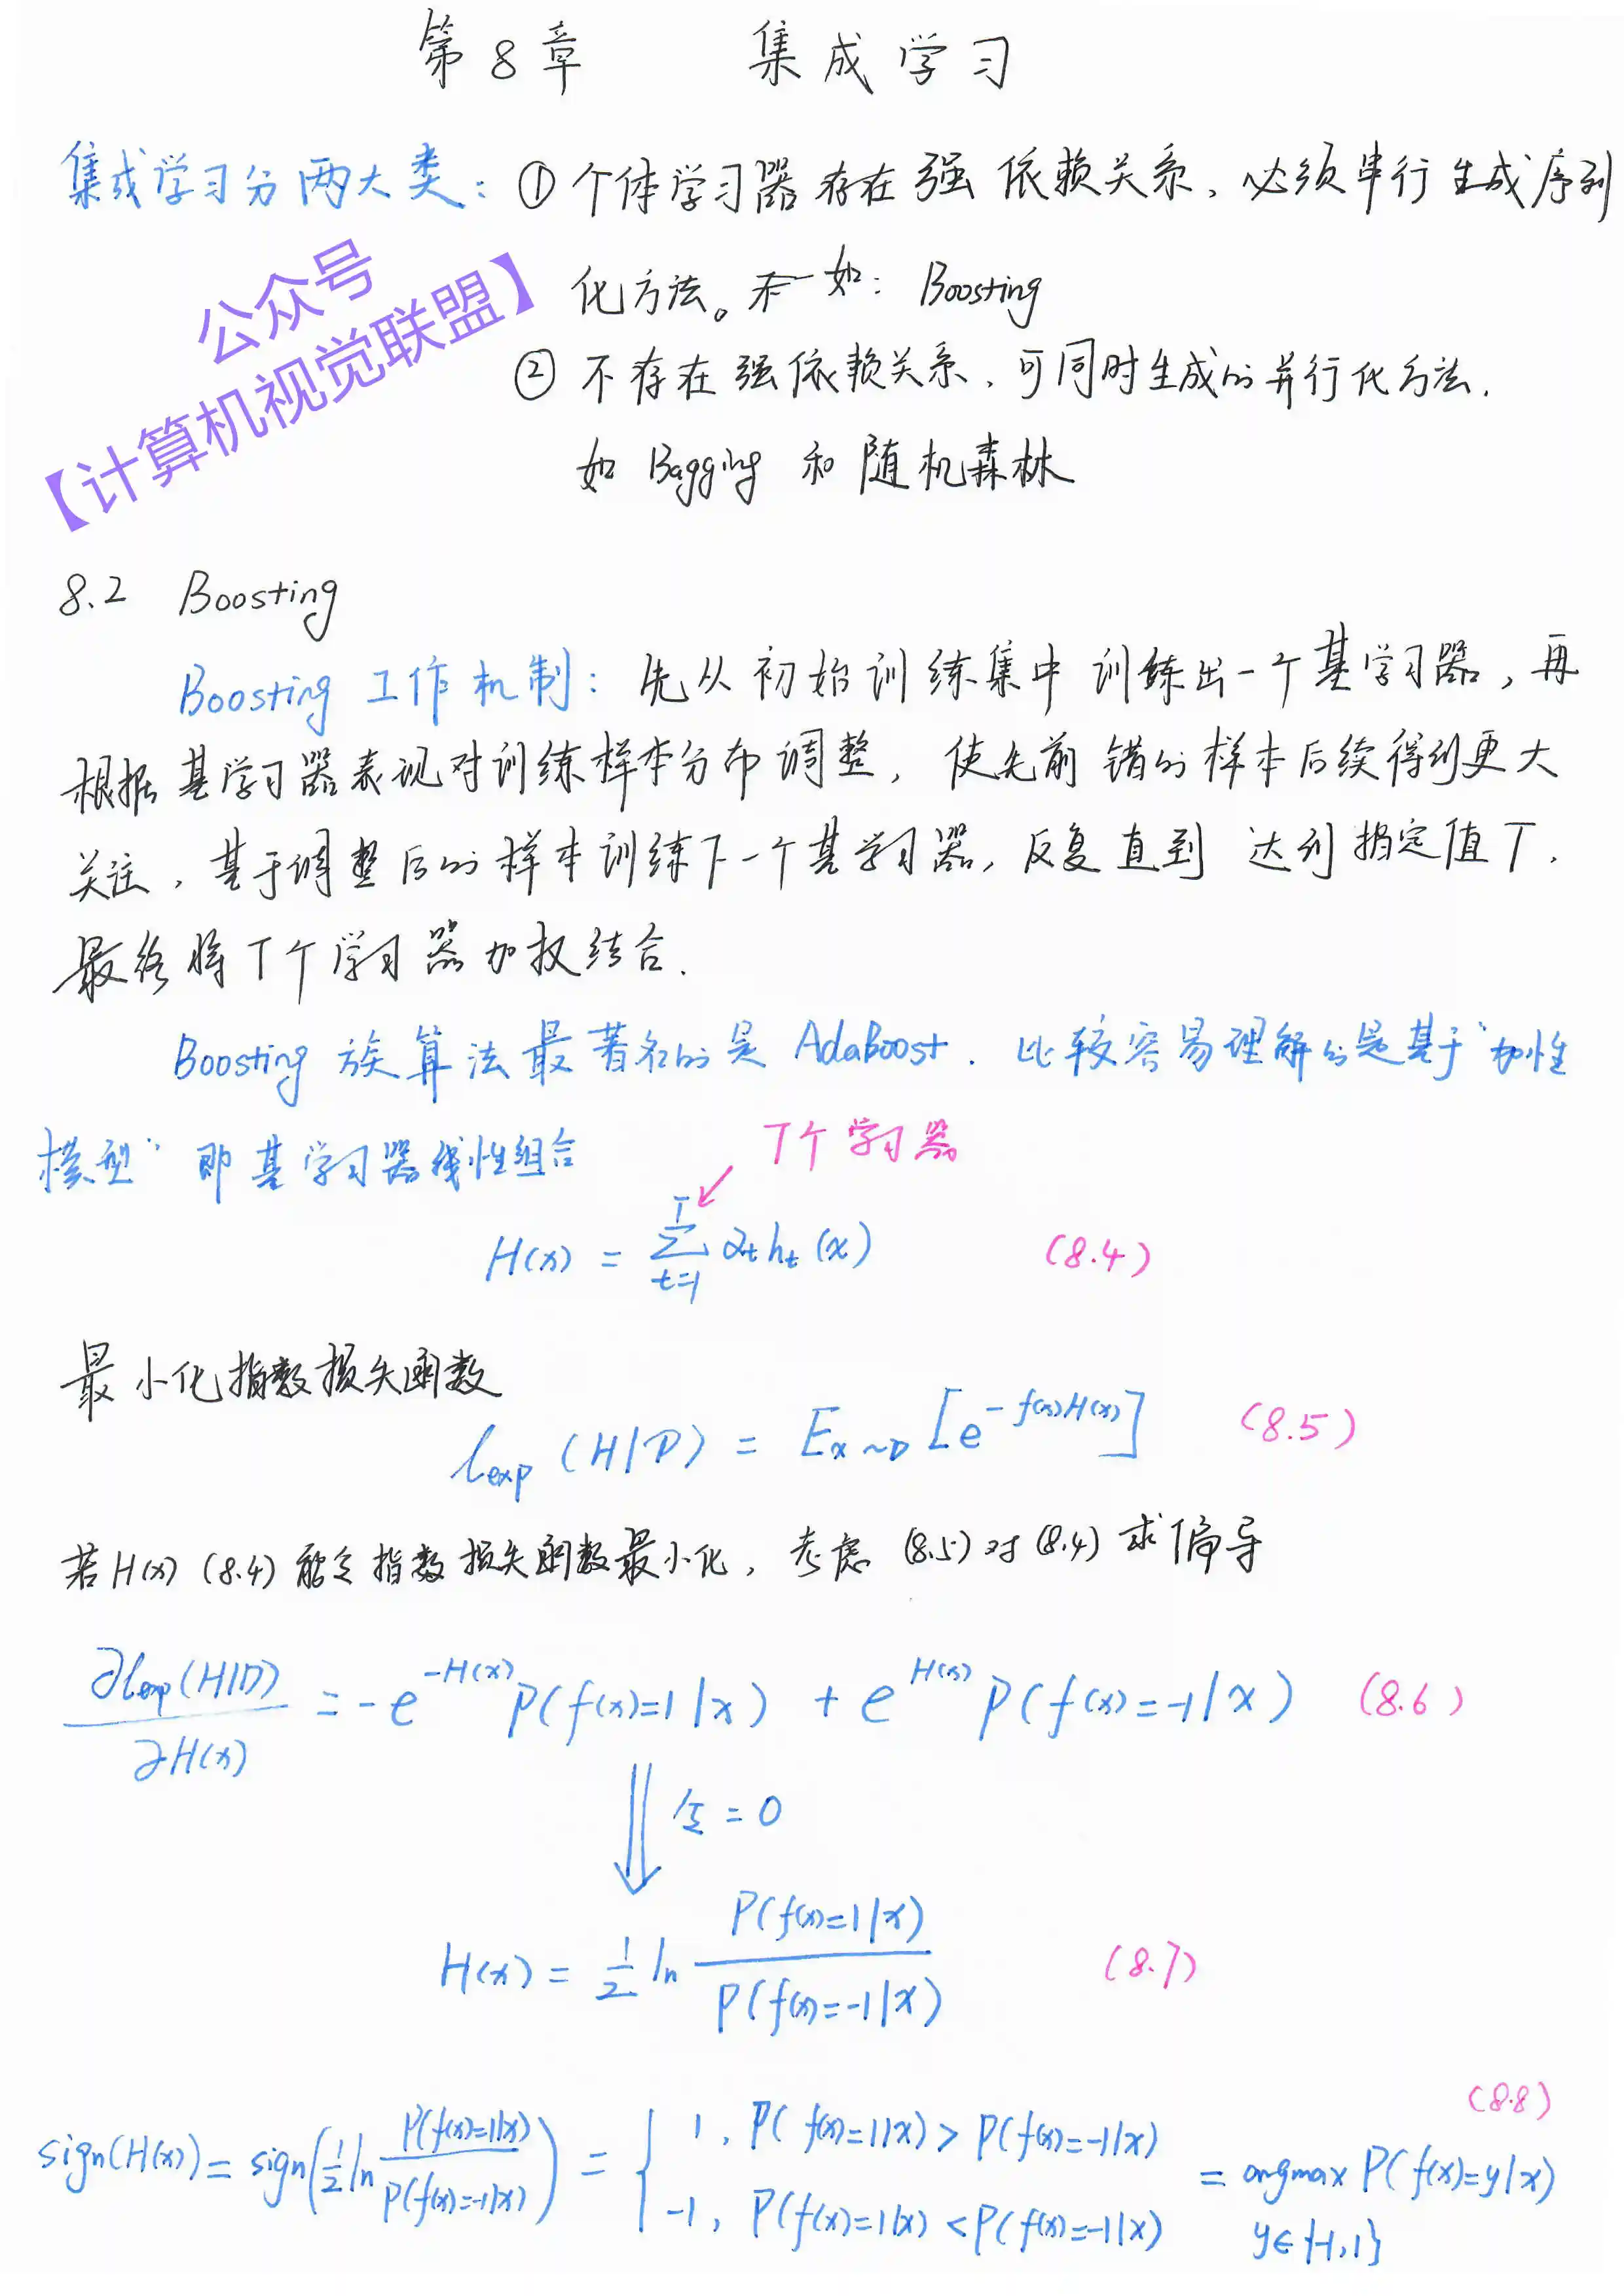 第8章 集成学习
集成学习分两大类：① 个体学习器存在强依赖关系，必须串行生成序列
化方法。 如：Boosting
② 不存在强依赖关系，可同时生成的并行化方法.
如 Bagging 和 随机森林
公众号
【计算机视觉联盟】
8.2 Boosting
Boosting 工作机制：先从初始训练集中训练出一个基学习器，再
根据基学习器表现对训练样本分布调整，使先前错的样本后续得到更大
关注，基于调整后的样本训练下一个基学习器，反复直到达到指定值T.
最终将T个学习器加权结合.
Boosting 族算法最著名的是 AdaBoost. 比较容易理解的是基于“加性
模型” 即基学习器线性组合
T个学习器
H(x) = ∑_{t=1}^{T} α_t h_t(x) (8.4)
最小化指数损失函数
ℓ_exp(H|D) = E_{x~D}[e^{-f(x)H(x)}] (8.5)
若H(x) (8.4) 能令指数损失函数最小化，考虑 (8.5) 对 (8.4) 求偏导
∂ℓ_exp(H|D)/∂H(x) = -e^{-H(x)} P(f(x)=1|x) + e^{H(x)} P(f(x)=-1|x) (8.6)
令 = 0
H(x) = 1/2 ln P(f(x)=1|x)/P(f(x)=-1|x) (8.7)
(8.8)
sign(H(x)) = sign(1/2 ln P(f(x)=1|x)/P(f(x)=-1|x)) = { 1, P(f(x)=1|x) > P(f(x)=-1|x)
-1, P(f(x)=1|x) < P(f(x)=-1|x)
= argmax P(f(x)=y|x)
y∈{-1,1}